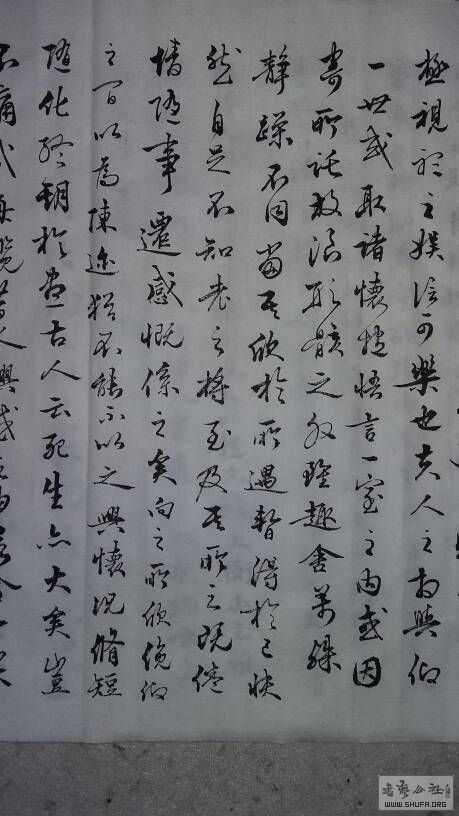 極視聽之娛信可樂也夫人之相與仰
一世或取諸懷抱悟言一室之内或因
寄所託放浪形骸之外雖趣舍萬殊
靜躁不同當其欣於所遇暫得於己快
然自足不知老之將至及其所之既倦
情隨事遷感慨係之矣向之所欣俛仰
之間以為陳迹猶不能不以之興懷況脩短
隨化終期於盡古人云死生亦大矣豈
不痛哉每覽昔人興感之由若合一
書藝公社
WWW.SHUFA.ORG